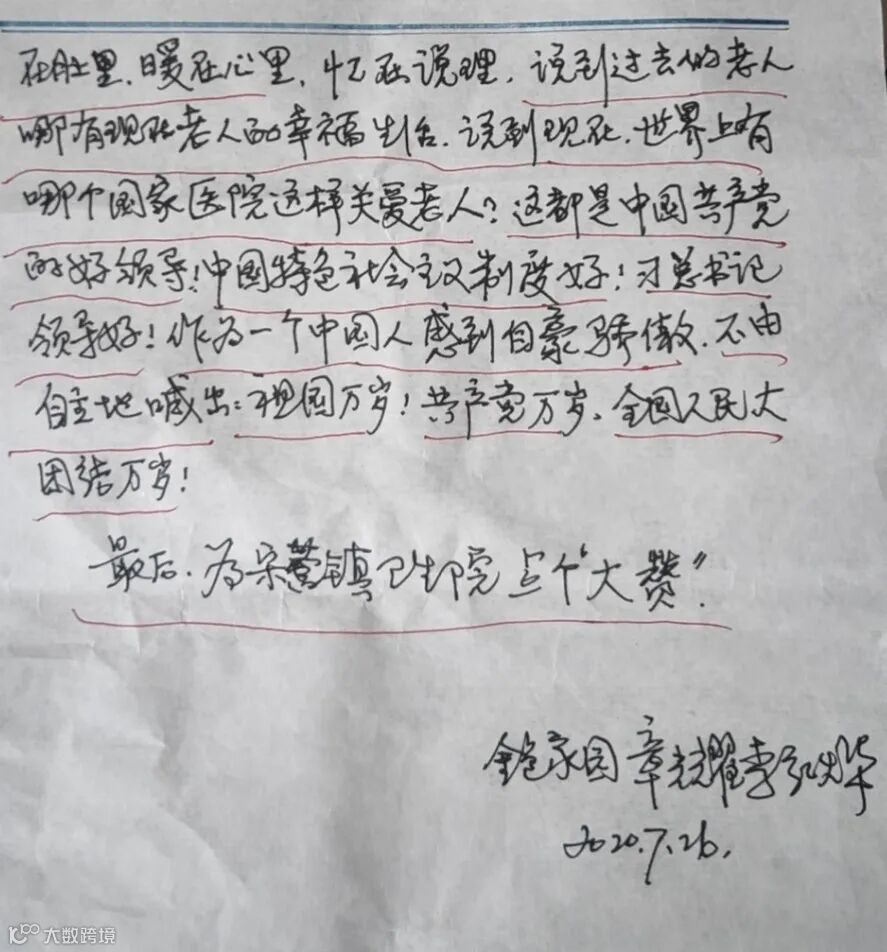 在肚里，暖在心里，忙在说理，说到过去的老人
哪有现在老人的幸福生活，说到现在，世界上有
哪个国家医院这样关爱老人？这都是中国共产党
的好领导！中国特色社会主义制度好！习总书记
领导好！作为一个中国人感到自豪骄傲，不由
自主地喊出：祖国万岁！共产党万岁、全国人民大
团结万岁！
最后，为宋营镇卫生院点个“大赞”．
家园 章耀李红烨
2020.7.26.
大数跨境